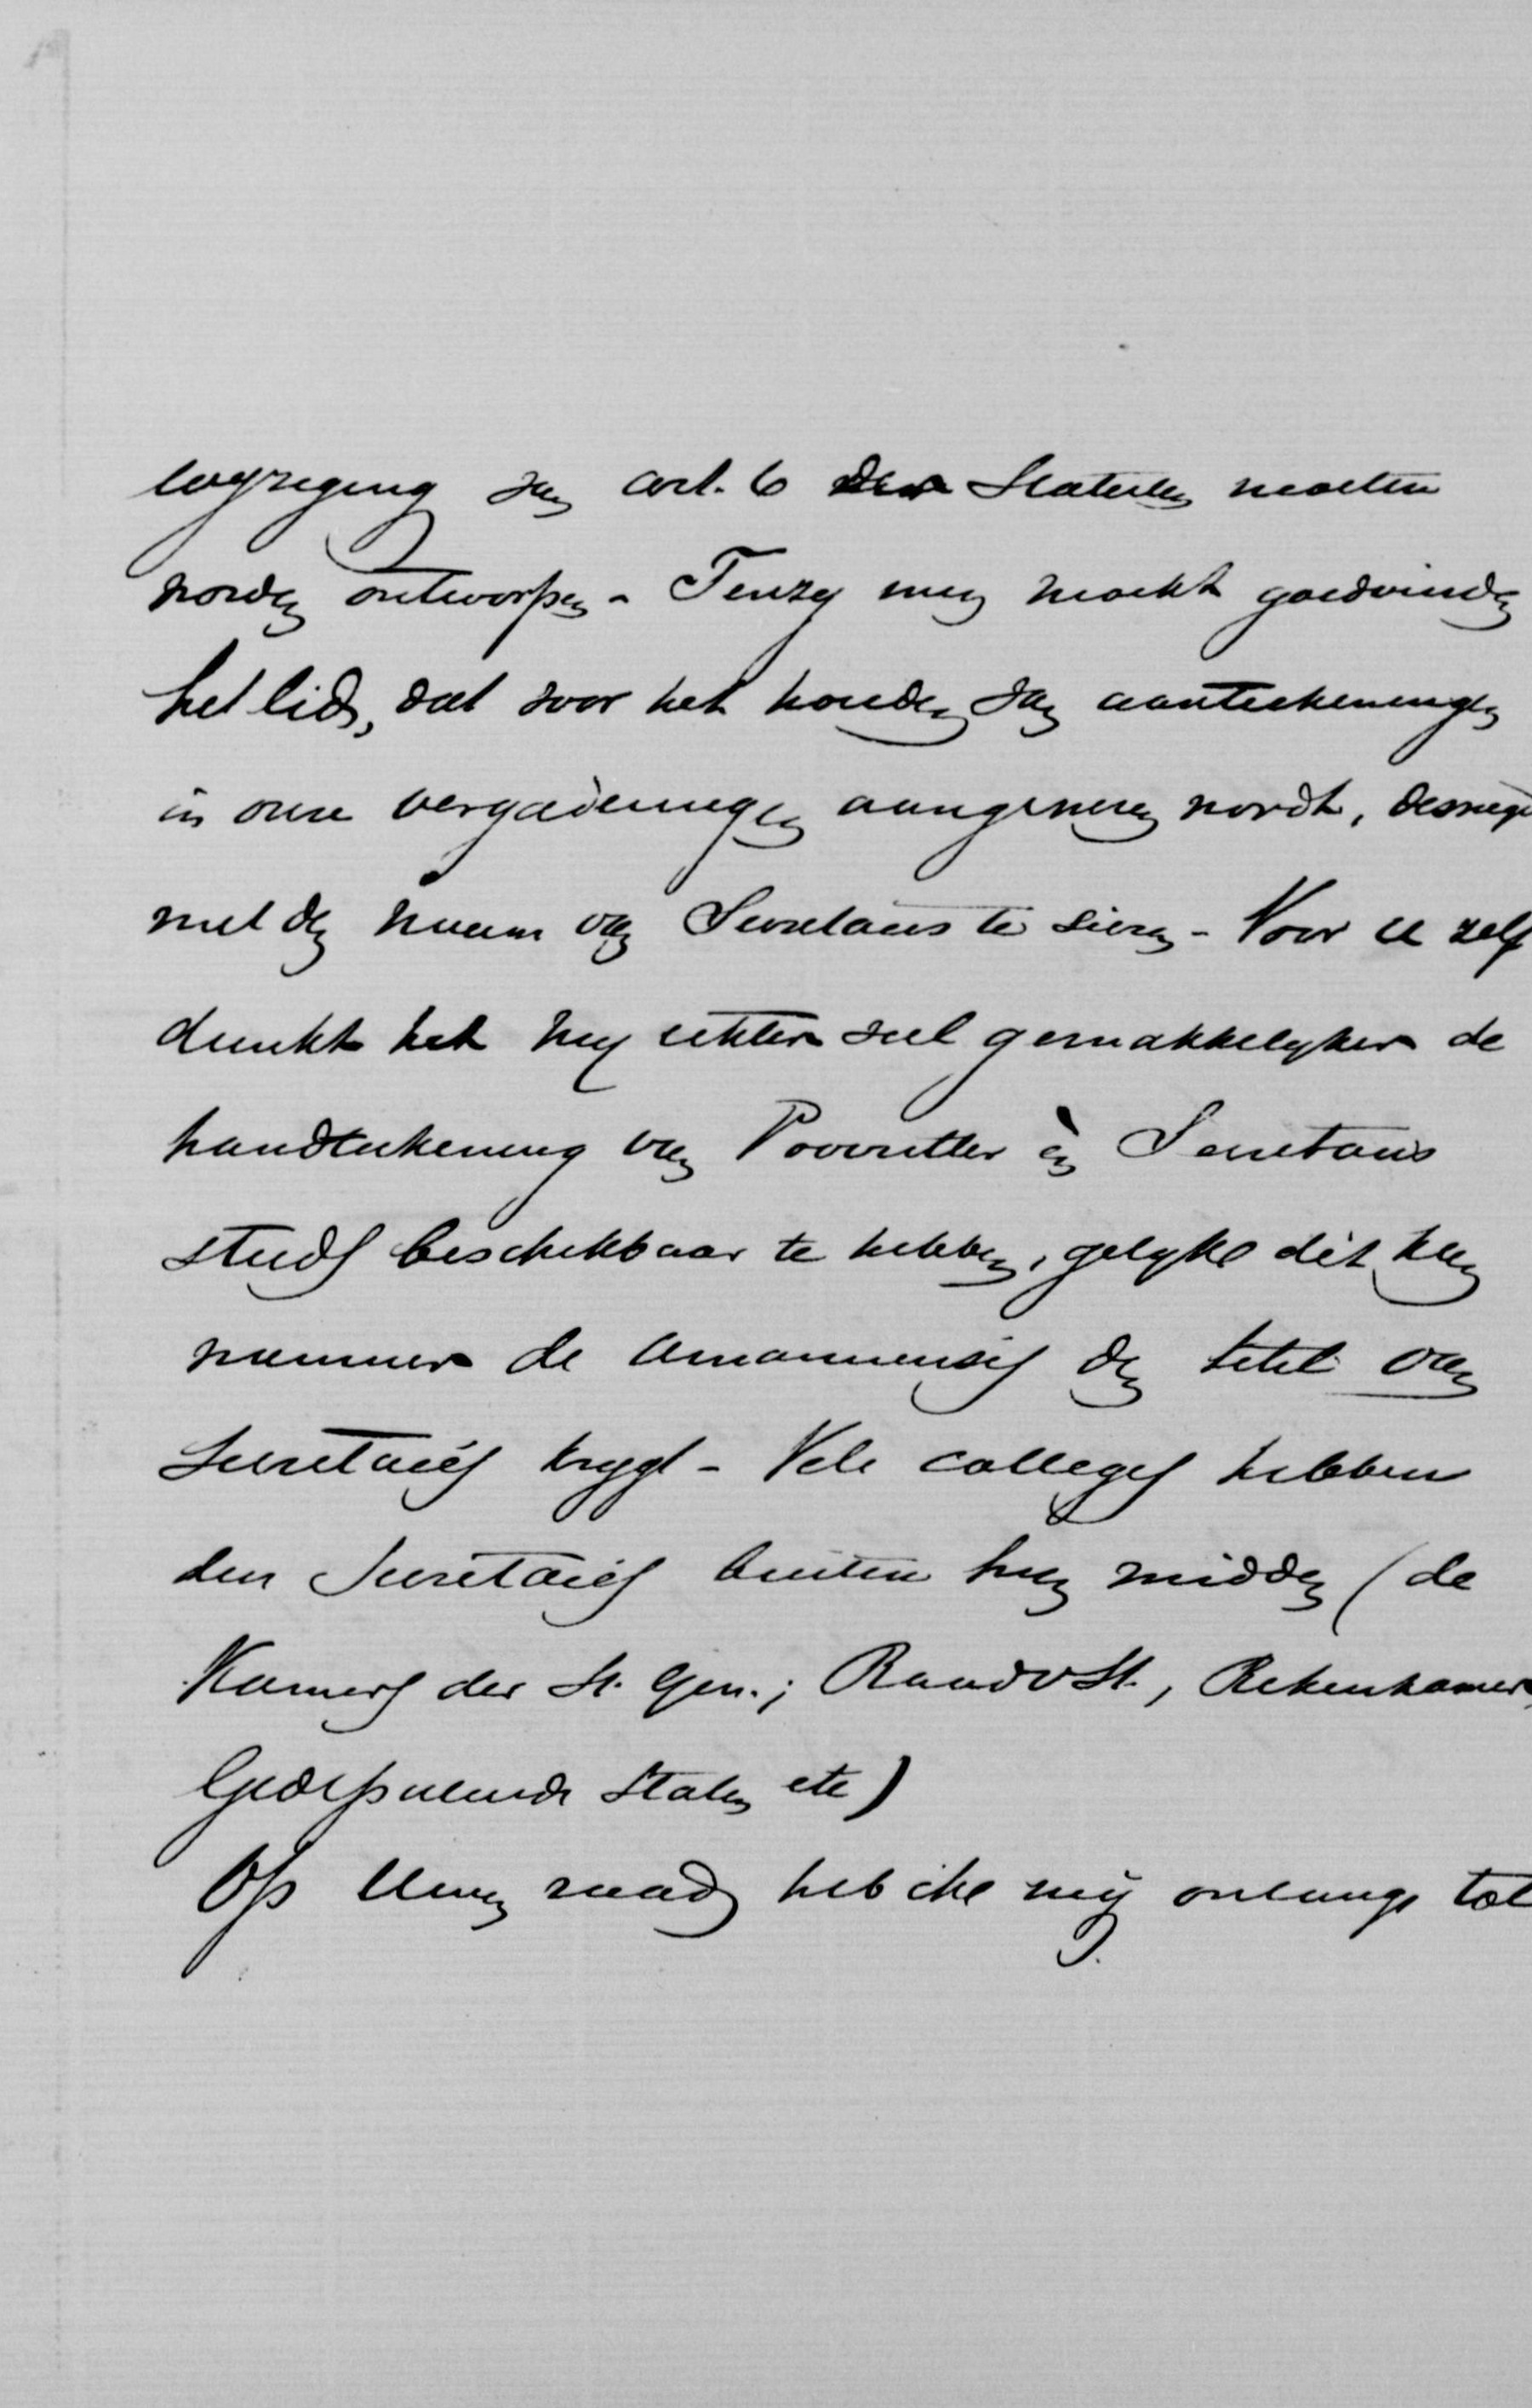 wyziging van art. 6 der Statuten moeten
worden ontworpen - Tenzy men mocht goedvinden
het lid, dat voor het houden van aanteekeningen
in onze vergaderingen aangewezen wordt, desnega
met den naam van Secretaris te sieren - Voor U zelf
dunkt het my echter veel gemakkelyker de
handteekening van Voorzitter èn Secretaris
steeds beschikbaar te hebben, gelyk dit kan
wanneer de amanuensis den titel van
Secretaris krygt - Vele colleges hebben
den Secretaris buiten hun midden (de
Kamers der St. Gen.; Raad v St., Rekenkamer,
Gedeputeerde Staten etc)
Op Uwen raad heb ik mij onlangs tot